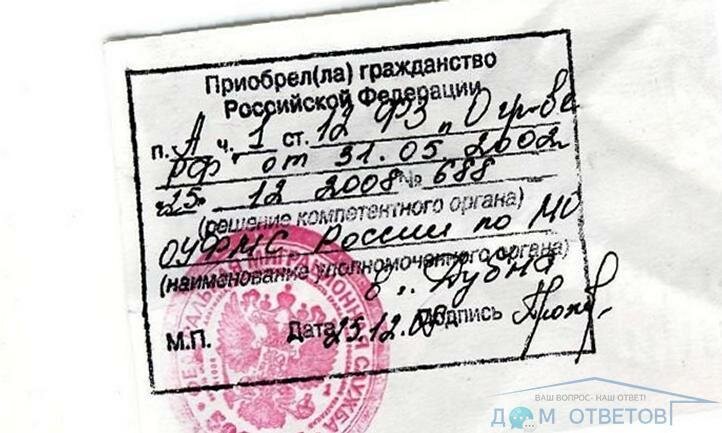 Приобрел(ла) гражданство
Российской Федерации
п. А ч. 1 ст. 12 ФЗ "О гр-ве
РФ" от 31.05 2002г
"25" 12 2008 № 688
(решение компетентного органа)
ОУФМС России по МО
(наименование уполномоченного органа)
в г. Дубна
М.П. Дата 25.12.08 Подпись
ФЕДЕРАЛЬНАЯ МИГРАЦИОННАЯ СЛУЖБА
ВАШ ВОПРОС- НАШ ОТВЕТ!
ДОМ ОТВЕТОВ